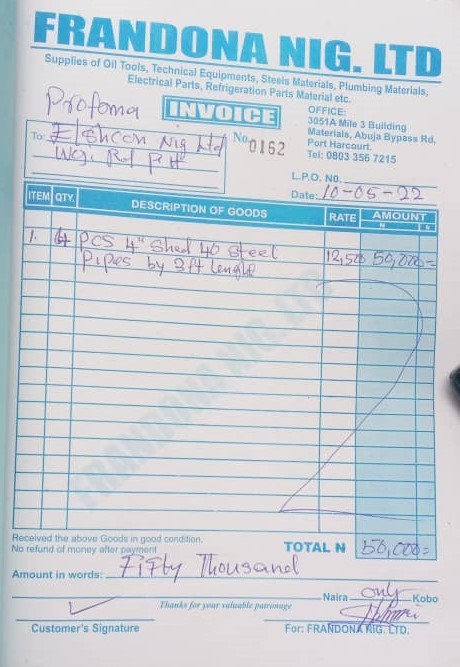 FRANDONA NIG. LTD
Supplies of Oil Tools, Technical Equipments, Steels Materials, Plumbing Materials,
Electrical Parts, Refrigeration Parts Material etc.
Profoma
INVOICE
OFFICE:
3051A Mile 3 Building
Materials, Abuja Bypass Rd,
Port Harcourt.
Tel: 0803 356 7215
To: Elshcon Nig Ltd
Wg. Rd PH
No. 0162
L.P.O. No.
Date: 10-05-22
ITEM QTY. DESCRIPTION OF GOODS RATE AMOUNT
N K
1. 4 PCS 4" Shed 40 Steel 12,500 50,000=
Pipes by 3ft Lenght
FRANDONA NIG. LTD
Received the above Goods in good condition.
No refund of money after payment
TOTAL N 50,000=
Amount in words: Fifty Thousand
Naira only Kobo
Thanks for your valuable patronage
Customer's Signature
For: FRANDONA NIG. LTD.